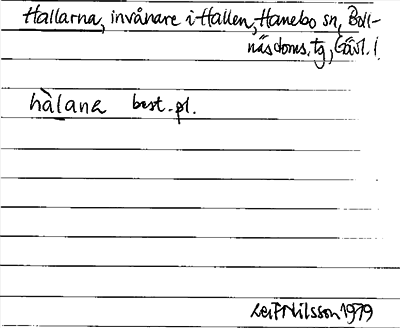 Hallarna, invånare i Hallen, Hanebo sn, Boll-
näs doms. tg, Gävl. l.
hàlana best. pl.
Leif Nilsson 1979